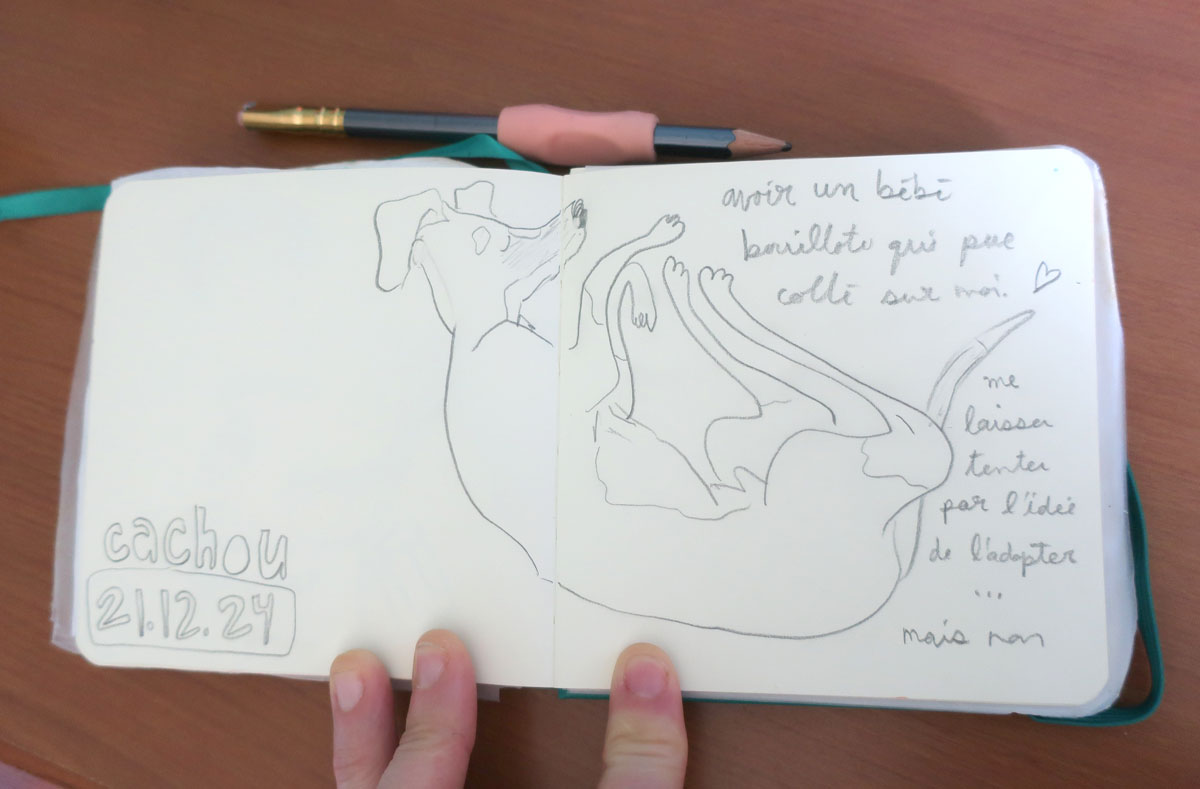 cachou
21.12.24
avoir un bébé
bouillote qui pue
collé sur moi.
me
laisser
tenter
par l'idée
de l'adopter
...
mais non